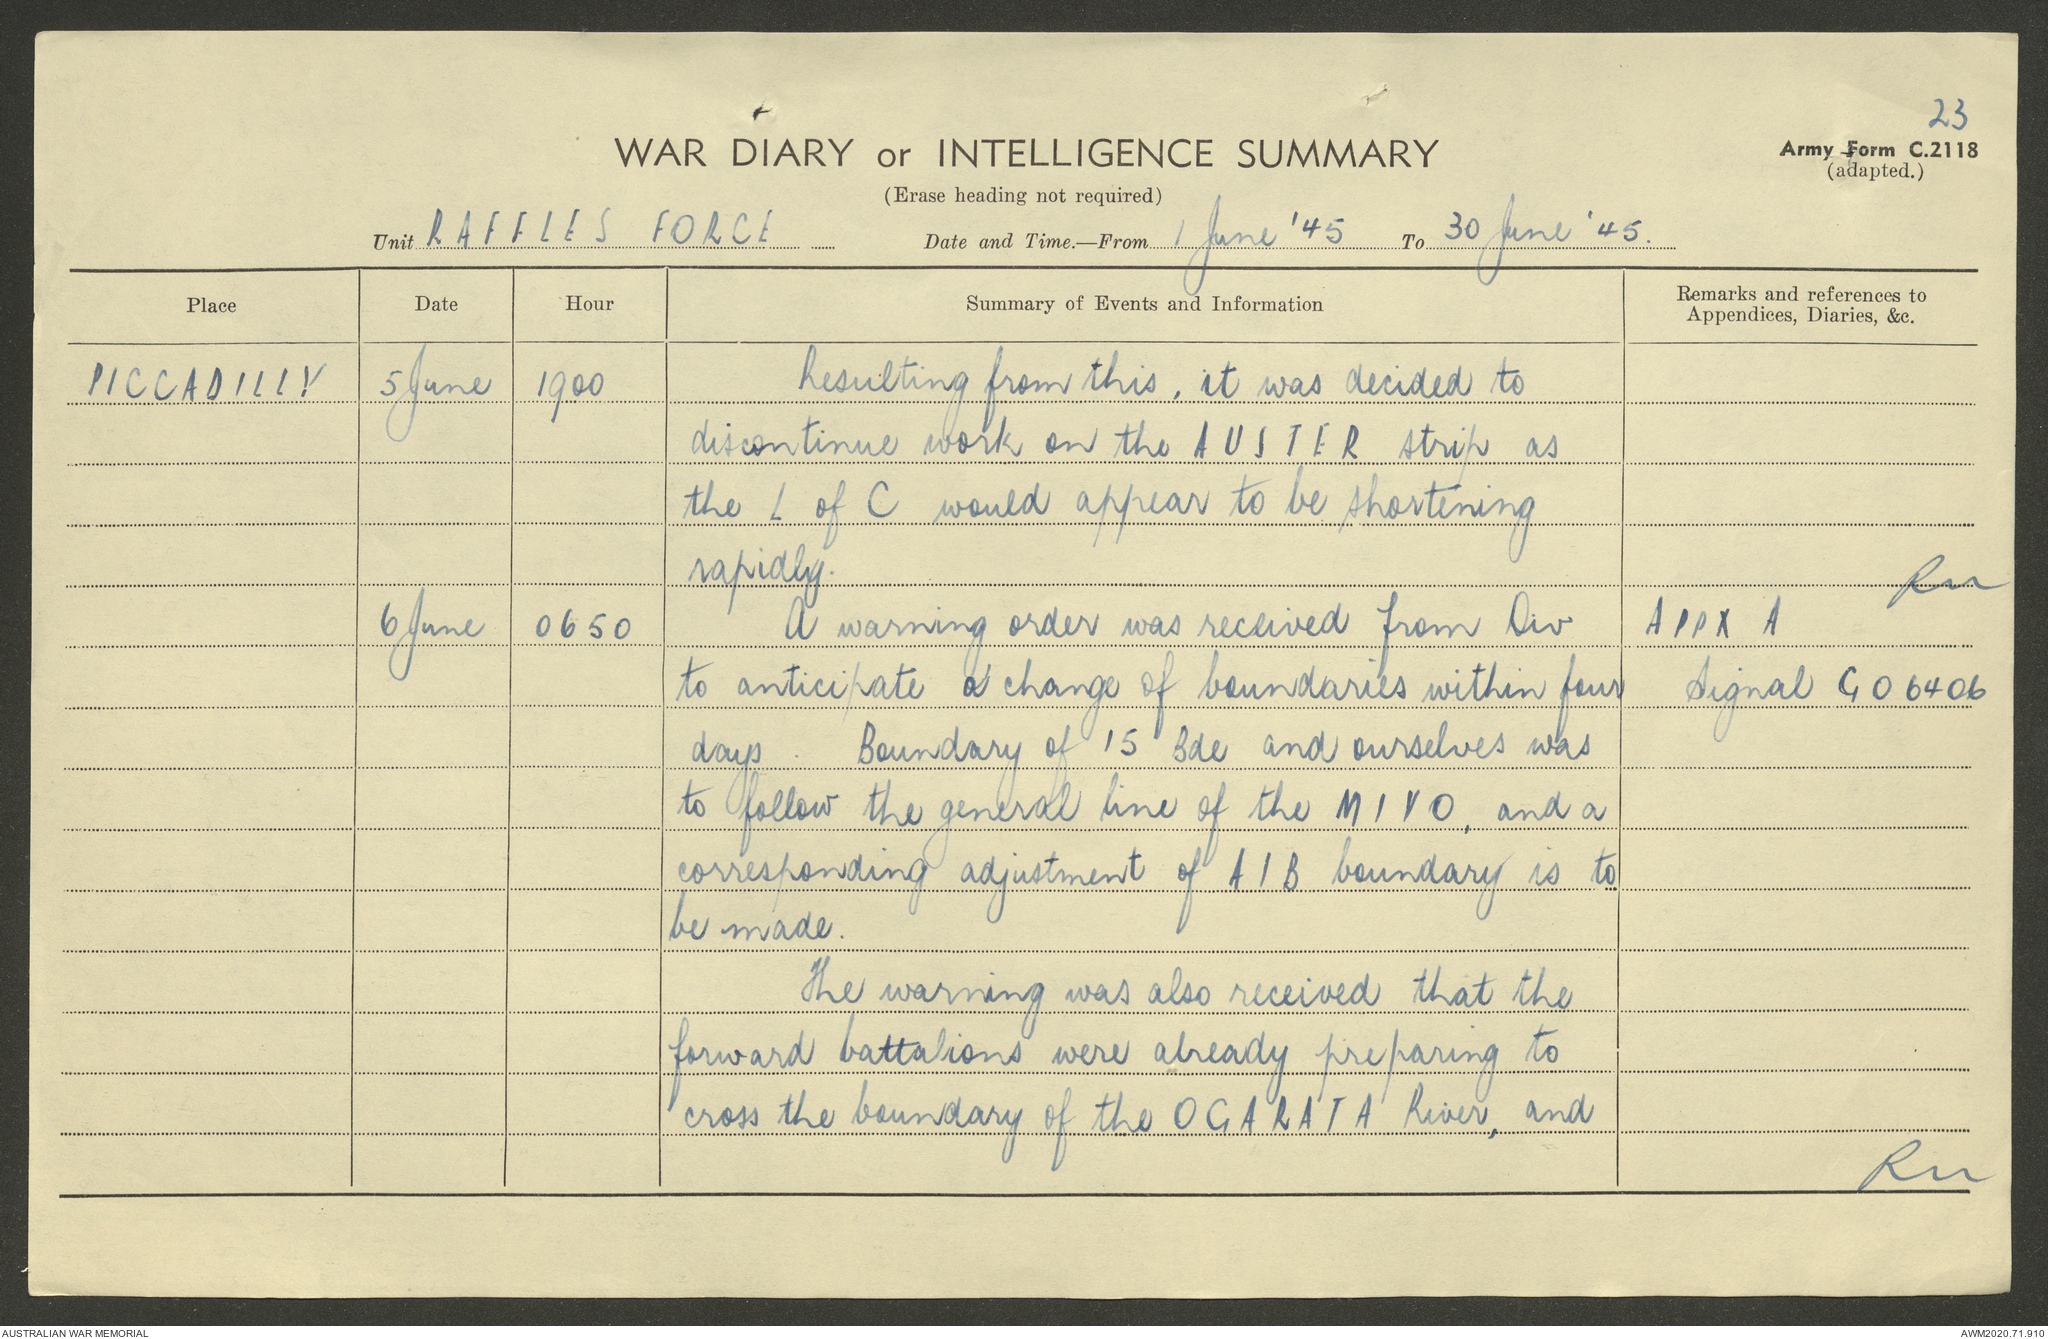 23
WAR DIARY or INTELLIGENCE SUMMARY
Army Form C.2118
(adapted.)
(Erase heading not required)
Unit RAFFLES FORCE Date and Time.—From 1 June '45 To 30 June '45.
Place Date Hour Summary of Events and Information Remarks and references to Appendices, Diaries, &c.
PICCADILLY 5 June 1900 Resulting from this, it was decided to
discontinue work on the AUSTER strip as
the L of C would appear to be shortening
rapidly.
6 June 0650 A warning order was received from Div APPX A
to anticipate a change of boundaries within four Signal GO6406
days. Boundary of 15 Bde and ourselves was
to follow the general line of the MIVO, and a
corresponding adjustment of AIB boundary is to
be made.
The warning was also received that the
forward battalions were already preparing to
cross the boundary of the OGARATA River, and
AUSTRALIAN WAR MEMORIAL
AWM2020.71.910